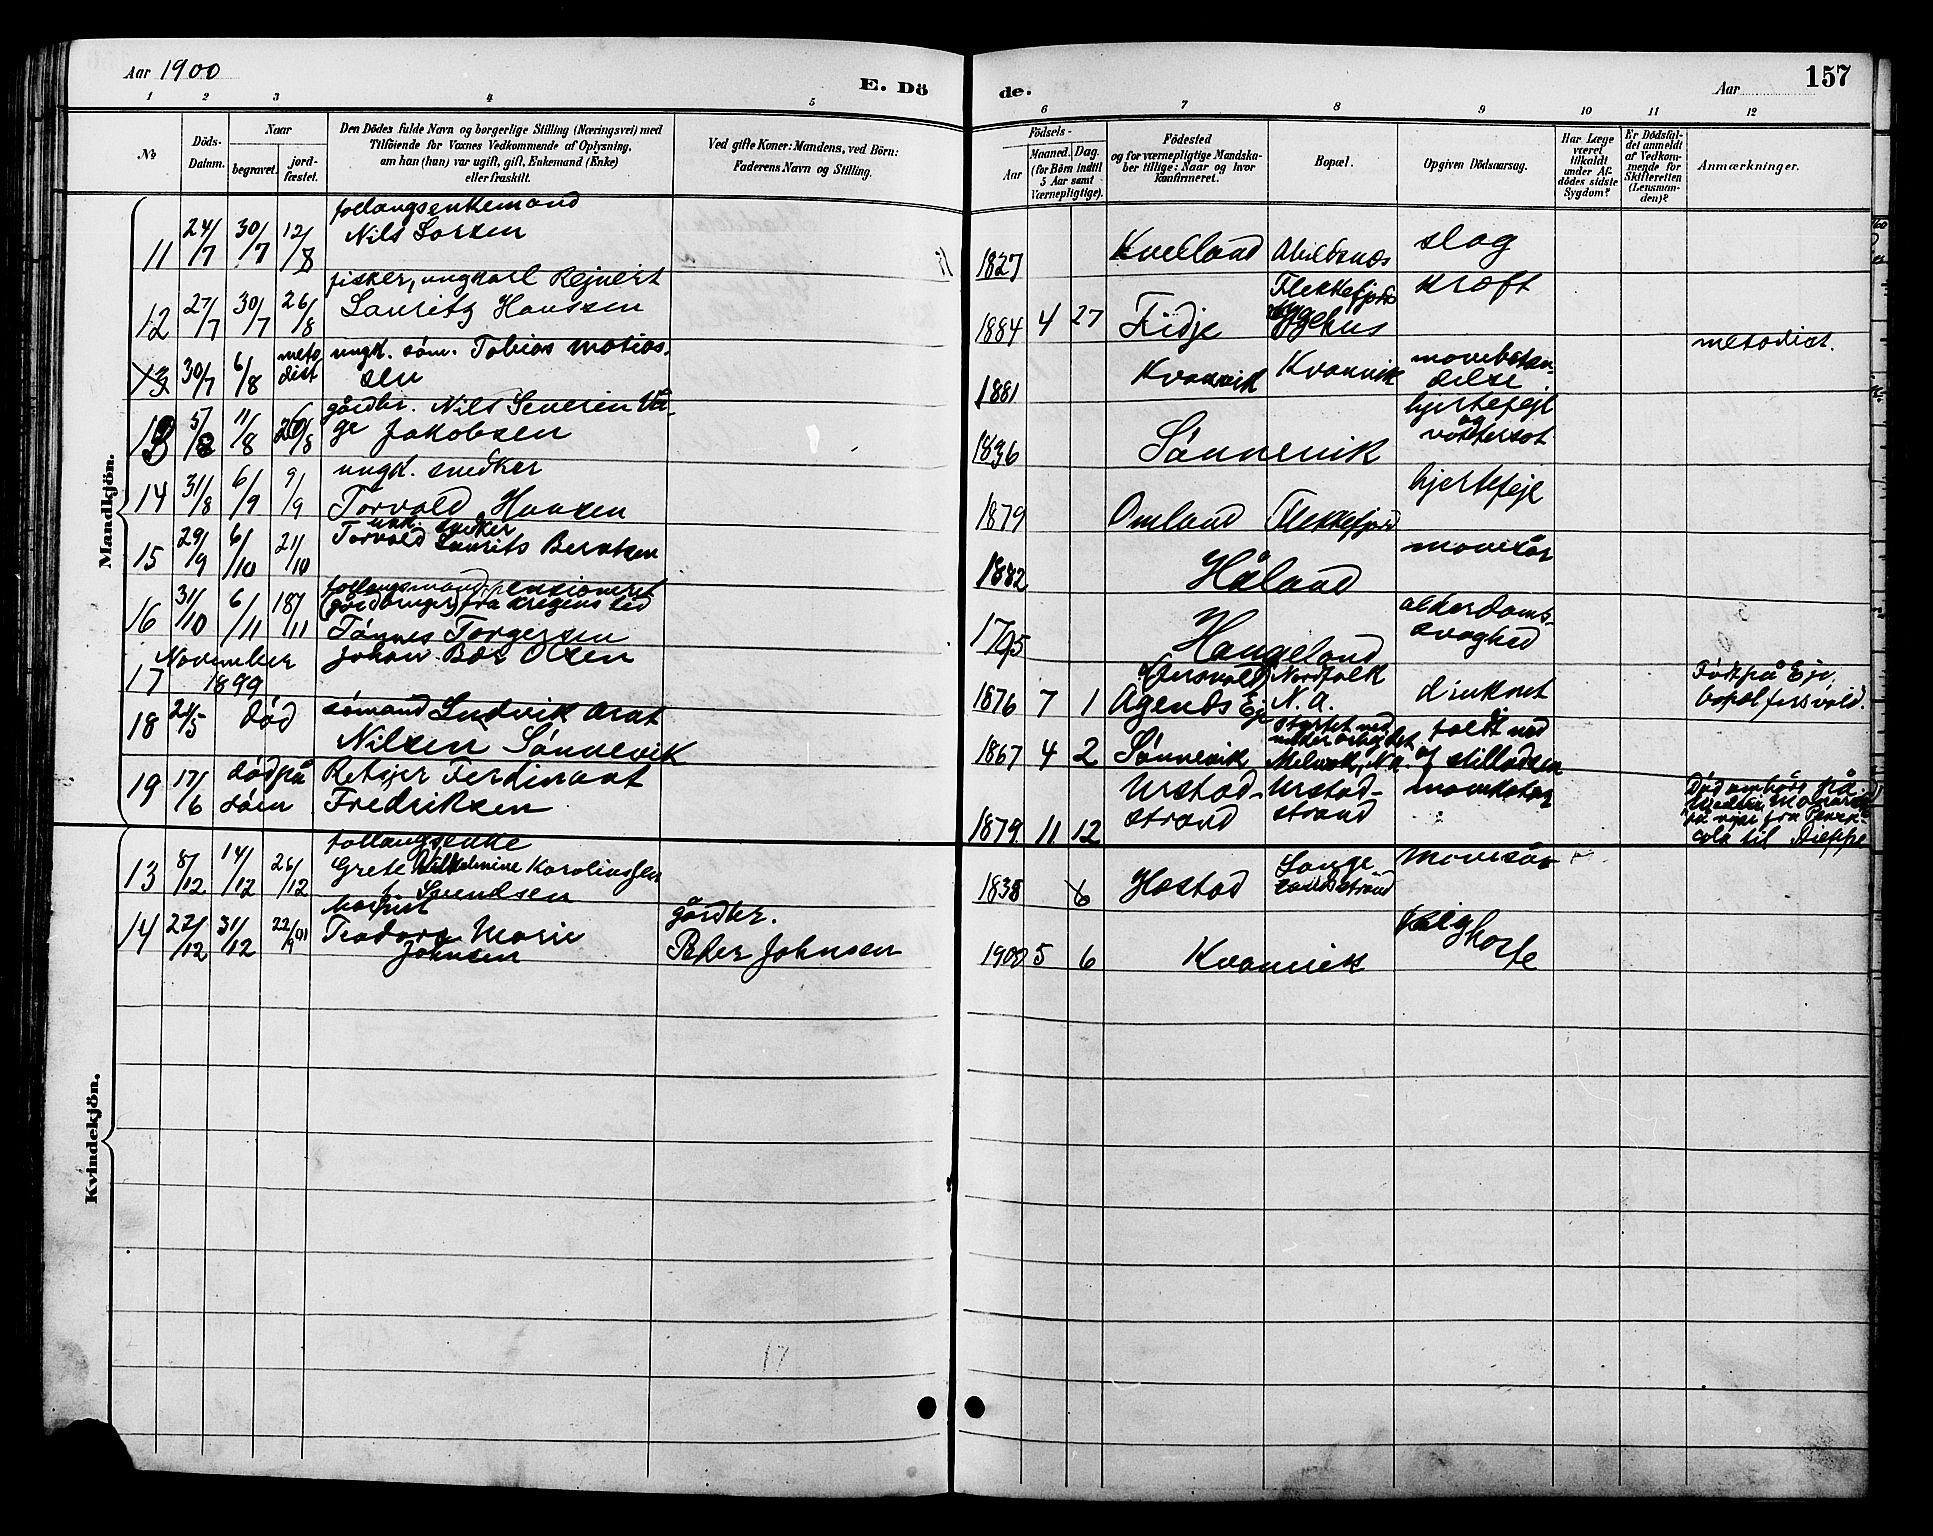 Aar 1900
E. Dö
de.
Aar
157
1 2 3 4 5 6 7 8 9 10 11 12
No
Döds-Datum.
Naar
begravet.
jord-fæstet.
Den Dödes fulde Navn og borgerlige Stilling (Næringsvei) med
Tilföiende for Voxnes Vedkommende af Oplysning,
om han (hun) var ugift, gift, Enkemand (Enke)
eller fraskilt.
Ved gifte Koner: Mandens, ved Börn:
Faderens Navn og Stilling.
Födsels-
Aar
Maaned. Dag.
(for Börn indtil
5 Aar samt
Værnepligtige).
Födested
og for værnepligtige Mandska-
ber tillige: Naar og hvor
konfirmeret.
Bopæl.
Opgiven Dödsaarsag.
Har Læge
været
tilkaldt
under Af-
dödes sidste
Sygdom?
Er Dödsfal-
det anmeldt
af Vedkom-
mende for
Skifteretten
(Lensman-
den)?
Anmærkninger.
Mandkjön.
11 24/7 30/7 12/8 follangsenkemand
Nils Larsen 1827 Kvelland Abelsnes slag
12 27/7 30/7 26/8 fisker, ungkarl Rejnert
Lauritz Hanssen 1884 4 27 Fidje Flekkefjords
sygehus kræft
30/7 6/8 metodist ungk. søm. Tobias Matias-
sen 1881 Kvanvik Kvanvik mavebetæn-
delse metodist.
13 5/8 11/8 26/8 gårdbr. Nils Severin Va-
ge Jakobsen 1836 Sønnevik hjertefejl
og
vattersot
14 31/8 6/9 9/9 ungk. snedker
Torvald Hansen 1879 Omland Flekkefjord hjertefejl
15 29/9 6/10 21/10 ungk. snedker
Torvald Laurits Berntsen 1882 Håland
16 31/10 6/11 18/11 follangsmand, pensioneret
(gårdbruger) fra krigens tid
Tønnes Torgersen 1795 Haugeland alderdoms-
svaghed
17 November
1899 Johan Bær Olsen 1876 7 1 (Jersvold)
Agends Ej Nordfolk
N. A. druknet Født på Eje,
bopæl Jersvold.
18 21/5 død sømand Ludvik Arnt
Nilsen Sønnevik 1867 4 2 Sønnevik styrtet ned
under arbejdet
Melwok, N. A. faldt ned
af stilladsen
19 17/6 død på
søen Retsjer Ferdinant
Fredriksen 1879 11 12 Urstad-
strand Urstad-
strand Død ombord på
på rejse fra Pensa-
cola til Dieppe
Kvindekjön.
13 8/12 14/12 26/12 follangsenke
Grete Vilhelmine Karolinussen
f. Svendsen 1838 Høstad Lange-
landsstrand
14 22/12 31/12 22/9 01
Teodora Marie
Johnsen gårdbr.
Peder Johnsen 1900 5 6 Kvanvik kighoste
17